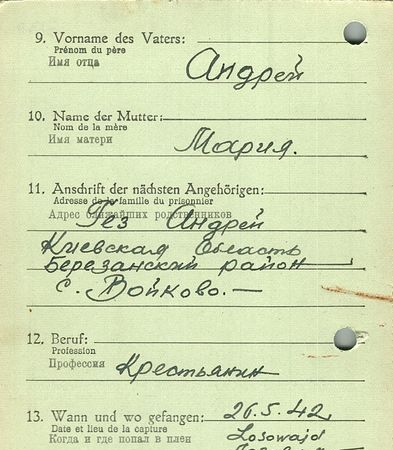 9. Vorname des Vaters:
Prénom du père
Имя отца
Андрей
10. Name der Mutter:
Nom de la mère
Имя матери
Мария.
11. Anschrift der nächsten Angehörigen:
Adresse de la famille du prisonnier
Адрес ближайших родственников
Гез Андрей
Киевская Область
Березанский район
с. Войково.—
12. Beruf:
Profession
Профессия
Крестьянин
13. Wann und wo gefangen: 26.5.42
Date et lieu de la capture
Когда и где попал в плен